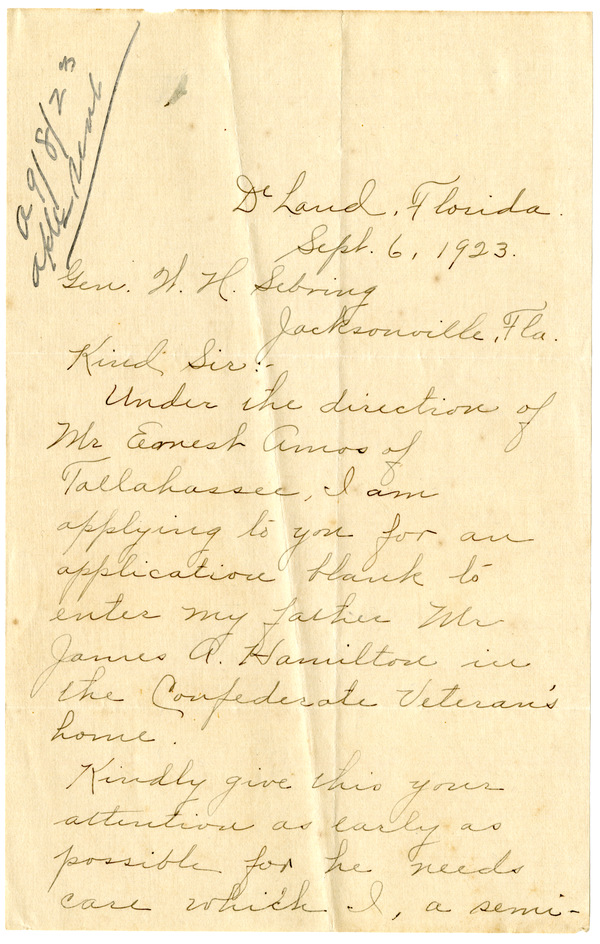 a 9/8/23
appl. sent
De Land, Florida.
Sept. 6, 1923.
Gen. W. H. Sebring
Jacksonville, Fla.
Kind Sir:-
Under the direction of
Mr Earnest Amos of
Tallahassee, I am
applying to you for an
application blank to
enter my father Mr
James A. Hamilton in
the Confederate Veteran's
home.
Kindly give this your
attention as early as
possible for he needs
care which I, a semi-